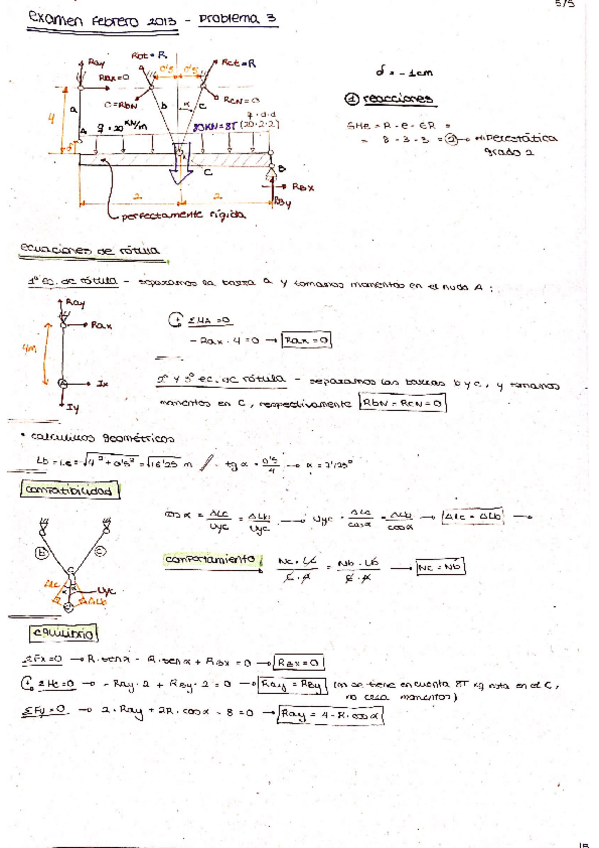 5/5
Examen Febrero 2013 - Problema 3
Ray
Rax=0
Rbt=R
0'5
0'5
Rct=R
0=RbN
RcN=0
a
b
α
c
4
q=20 KN/m
80KN=8T (20·2·2)
A
C
B
RBx
RBy
2
2
perfectamente rígida
d=-1cm
① reacciones
GHe = R - e - GR =
= 8 - 3 - 3 = ② → hiperestática
grado 2
ecuaciones de rótula
1ª ec. de rótula - separamos la barra a y tomamos momentos en el nudo A:
Ray
Rax
4m
A
Ix
Iy
ΣMA=0
- Rax · 4 = 0 → Rax=0
2ª y 3ª ec. de rótula - separamos las barras b y c, y tomamos
momentos en C, respectivamente RbN=RcN=0
• calculitos geométricos
Lb=Lc=√4²+0'5²=√16'25 m / tgα = 0'5/4 → α=7'125°
compatibilidad
cosα = ΔLc/Uyc = ΔLb/Uyc → Uyc = ΔLc/cosα = ΔLb/cosα → ΔLc=ΔLb →
b
c
C
ΔLc
α
α
Uyc
ΔLb
comportamiento
Nc·Lc/E·A = Nb·Lb/E·A → Nc=Nb
equilibrio
ΣFx=0 → R·senα - R·senα + RBx = 0 → RBx=0
ΣMc=0 → -Ray·2 + RBy·2 = 0 → Ray=RBy (no se tiene en cuenta 8T xq está en el C,
no crea momentos)
ΣFy=0 → 2·Ray + 2R·cosα - 8 = 0 → Ray = 4-R·cosα